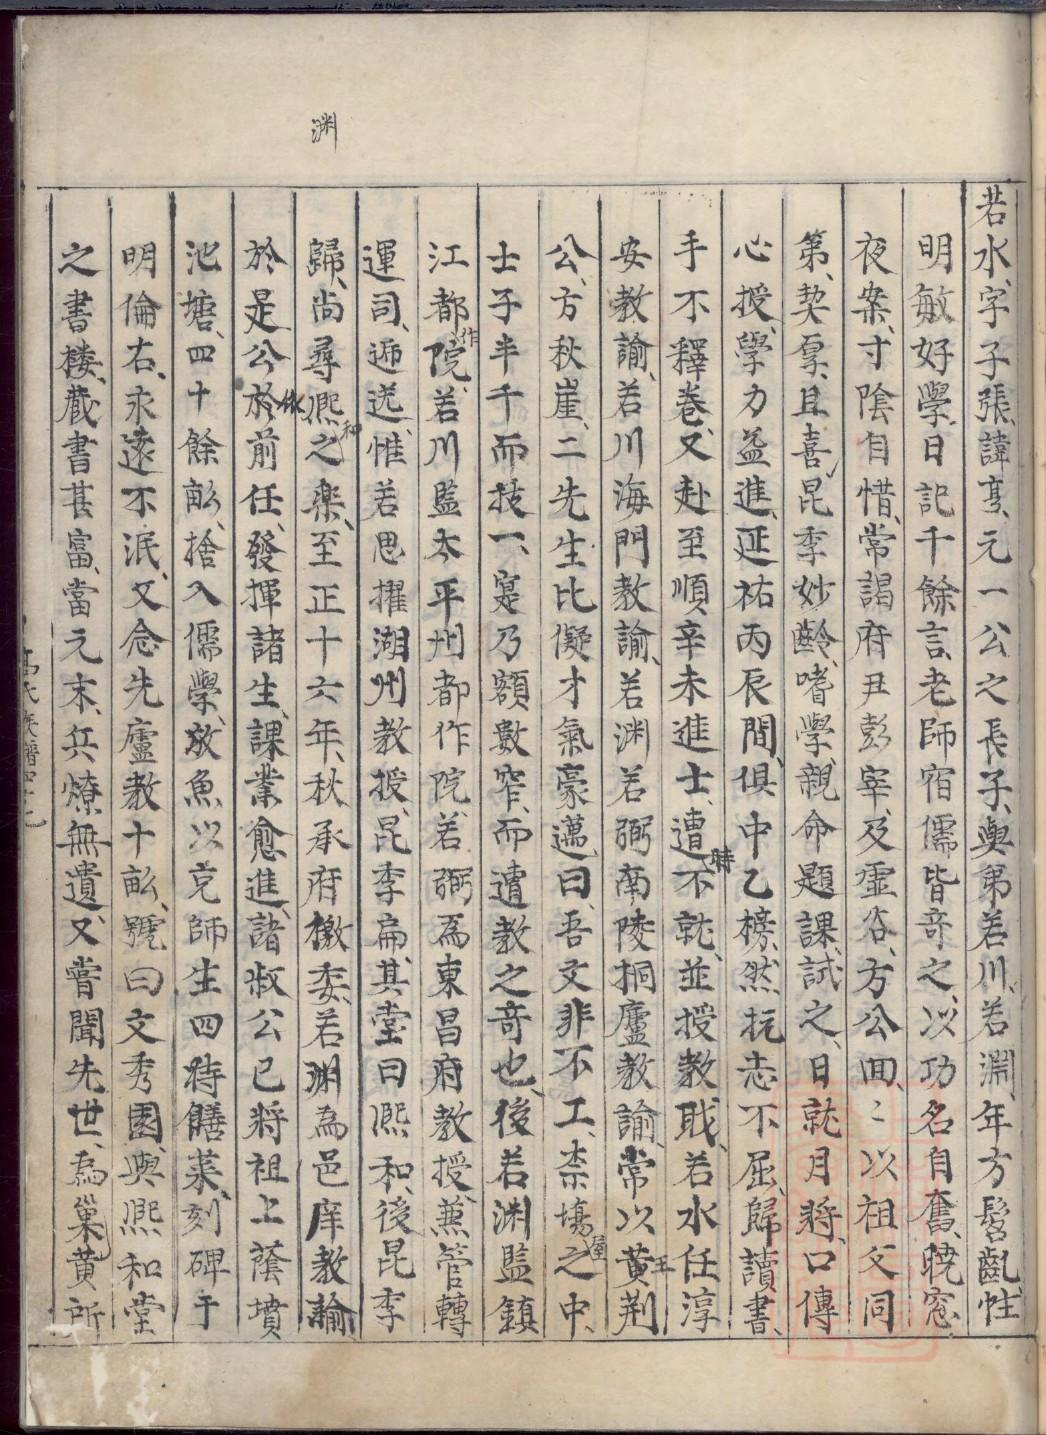 渊
若水、字子張、諱亨、元一公之長子、與弟若川、若淵、年方髫齓、性
明敏好學、日記千餘言、老師宿儒皆奇之、以功名自奮、曉窓
夜案、寸陰自惜、常謁府尹彭宰、及虛谷、方公回、〻以祖父同
第、契厚、且喜昆季妙齡、嗜學、親命題課、試之、日就月將、口傳
心授、學力益進、延祐丙辰間、俱中乙榜、然抗志不屈、歸讀書、
手不釋卷、又赴至順辛未進士、遭時不就、並授教職、若水任淳
安教諭、若川海門教諭、若渊若弼南陵桐廬教諭、常以黃王荆
公、方秋崖、二先生比儗、才氣豪邁、曰、吾文非不工、柰塲屋之中、
士子半千而技一、寔乃額數窄、而遺教之奇也、後若渊監鎮
江都作院、若川監太平州都作院、若弼為東昌府教授、兼管轉
運司、遞送、惟若思擢湖州教授、昆季扁、其堂曰熙和、後昆季
歸、尚尋熙和之樂、至正十六年、秋承府檄委、若渊為邑庠教諭
於是公於前任、發揮諸生、課業愈進、諸叔公已將祖上蔭墳
池塘、四十餘畝、捨入儒學、放魚以克師生四時饍菜、刻碑于
明倫右、永遠不泯、又念先廬教十畝、號曰文秀園、與熙和堂
之書樓、藏書甚富、當元末、兵燎無遺、又嘗聞先世、為巢黃所